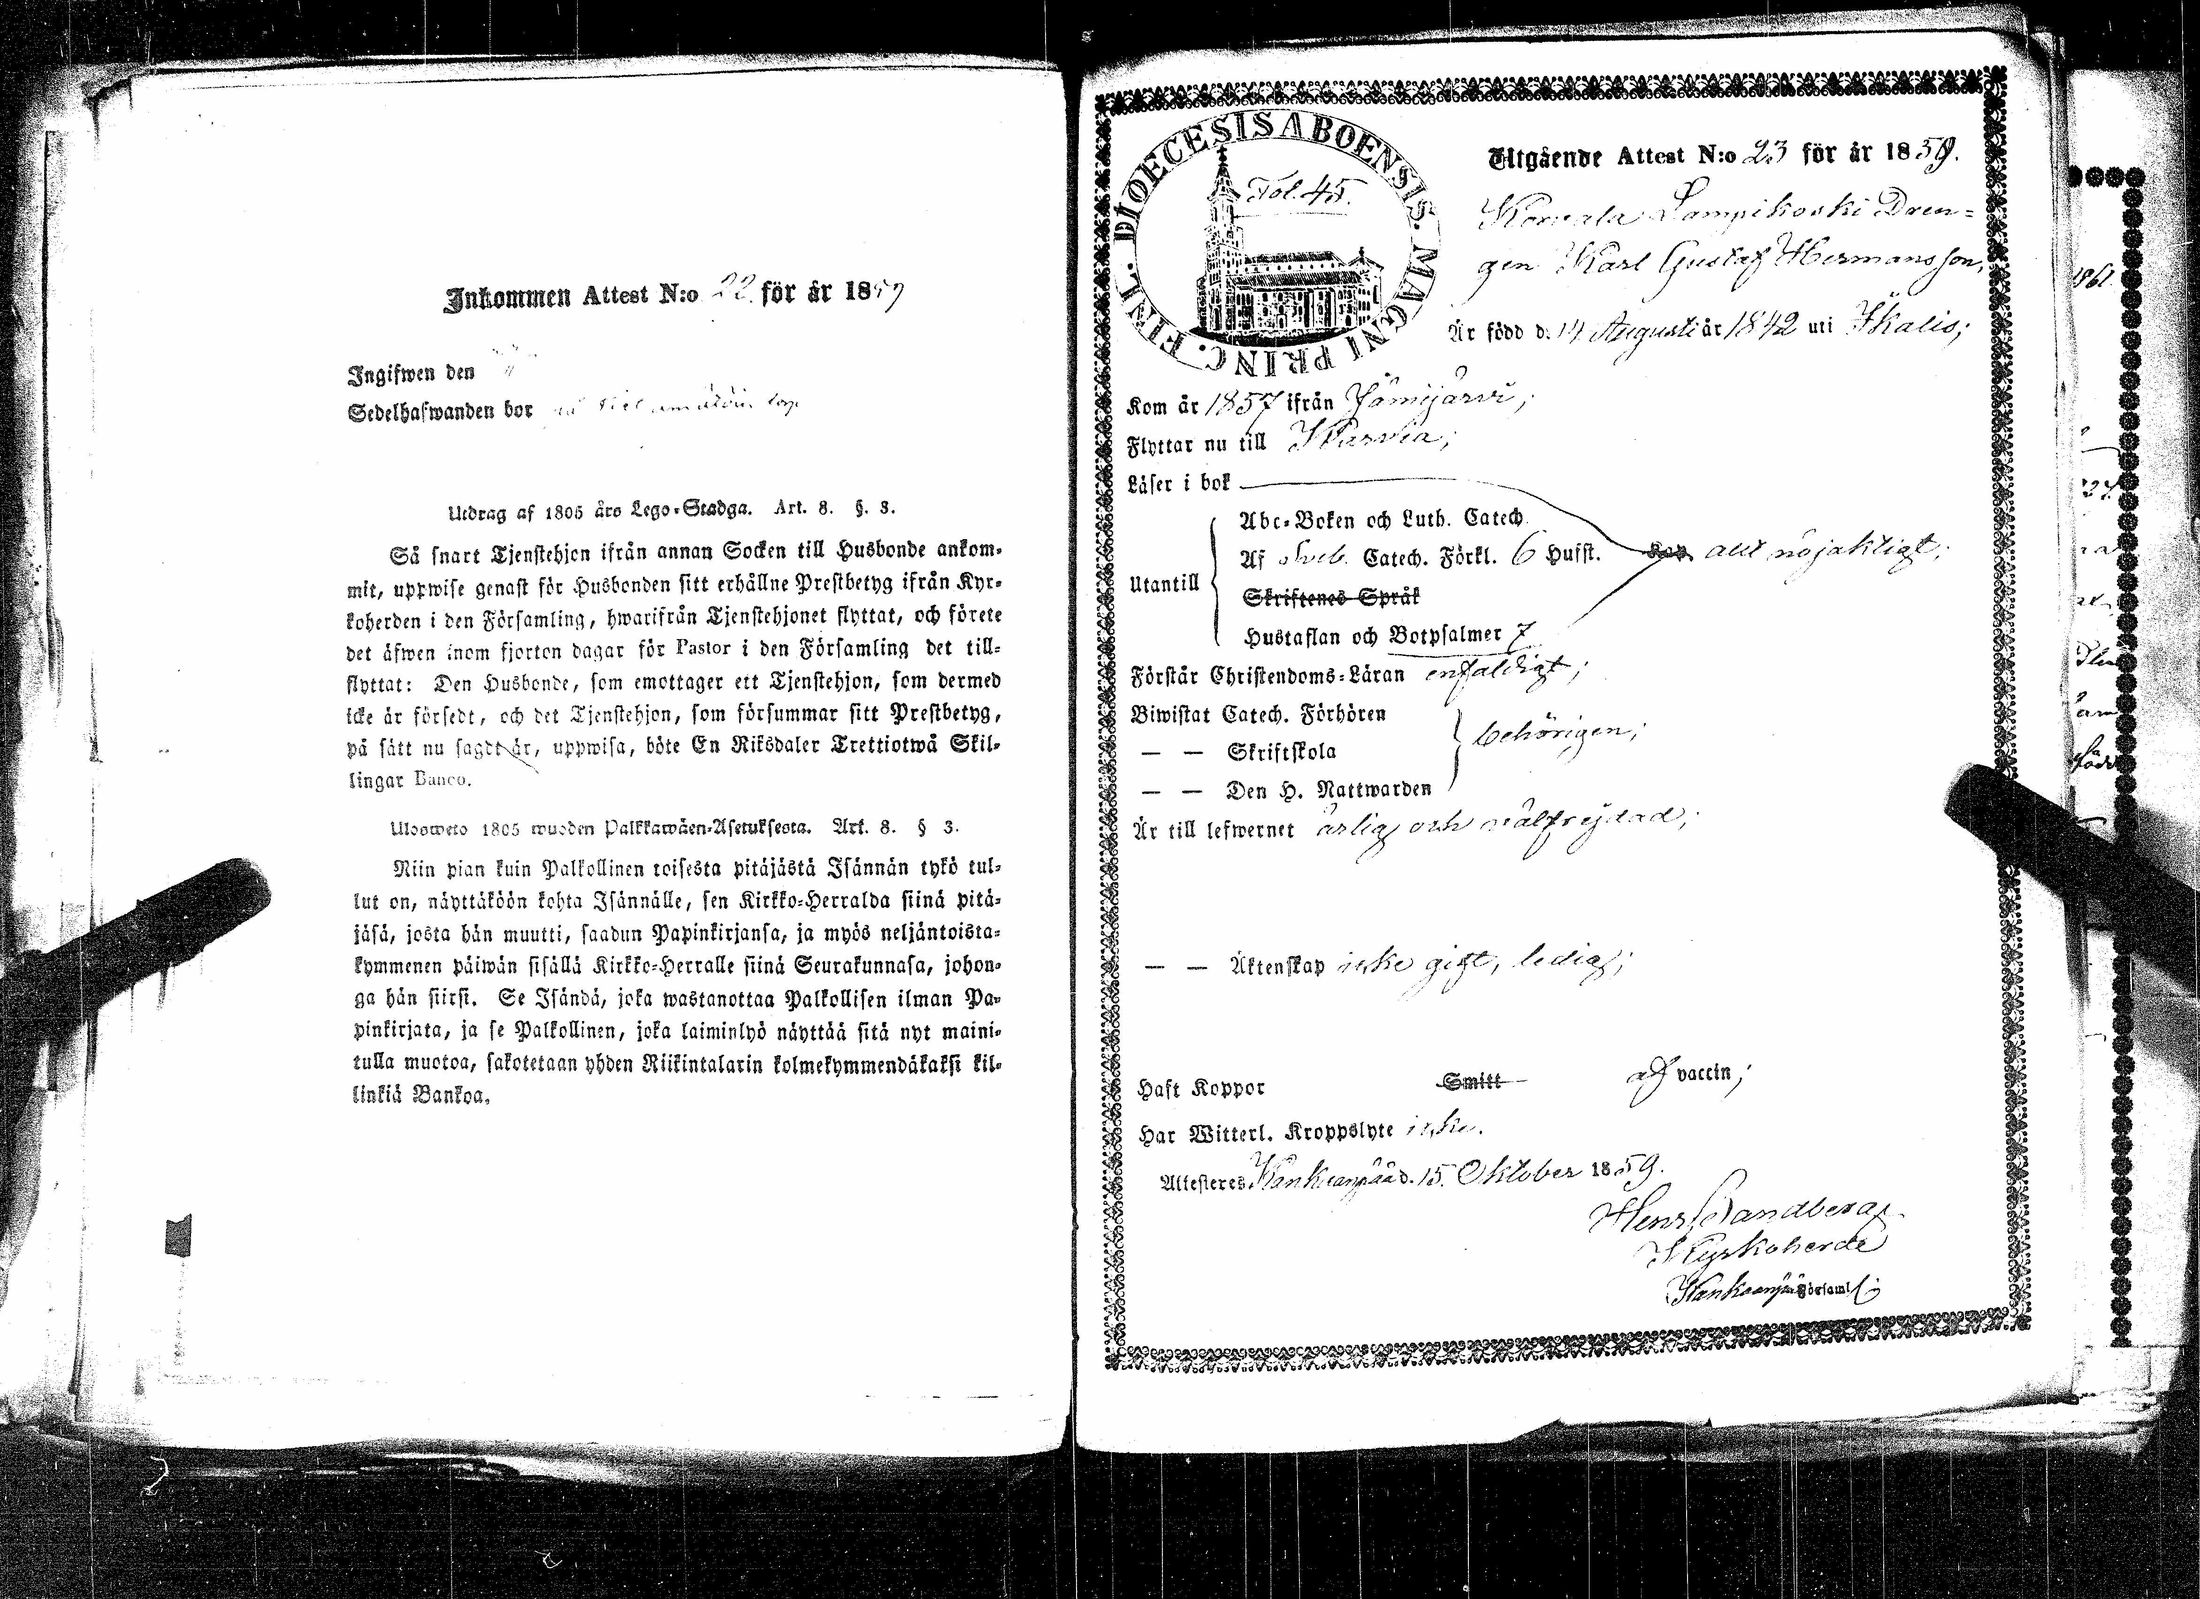 Inkommen Attest N:o 22. för år 1859
Ingifwen den
Sedelhafwanden bor
Utdrag af 1805 års Lego-Stadga. Art. 8. §. 3.
Så snart Tjenstehjon ifrån annan Socken till Husbonde ankom-
mit, uppwise genast för Husbonden sitt erhållne Prestbetyg ifrån Kyr-
koherden i den Församling, hwarifrån Tjenstehjonet flyttat, och förete
det äfwen inom fjorton dagar för Pastor i den Församling det till-
flyttat: Den Husbonde, som emottager ett Tjenstehjon, som dermed
icke är försedt, och det Tjenstehjon, som försummar sitt Prestbetyg,
på sätt nu sagdt är, uppwisa, böte En Riksdaler Trettiotwå Skil-
lingar Banco.
Ulosweto 1805 wuoden Palkkawäen-Asetuksesta. Art. 8. § 3.
Niin pian kuin Palkollinen toisesta pitäjästä Isännän tykö tul-
lut on, näyttäköön kohta Isännälle, sen Kirkko-Herralda siinä pitä-
jäsä, josta hän muutti, saadun Papinkirjansa, ja myös neljäntoista-
kymmenen päiwän sisällä Kirkko-Herralle siinä Seurakunnasa, johon-
ga hän siirsi. Se Isändä, joka wastanottaa Palkollisen ilman Pa-
pinkirjata, ja se Palkollinen, joka laiminlyö näyttää sitä nyt maini-
tulla muotoa, sakotetaan yhden Riikintalarin kolmekymmendäkaksi kil-
linkiä Bankoa.
DIOECESIS ABOENSIS. MAGNI PRINC. FINL.
Fol. 45.
Utgående Attest N:o 23 för år 1859.
Lampikoski Dren-
gen Karl Gustaf Hermansson,
Är född d. 14 Augusti år 1842 uti Ikalis;
Kom år 1857 ifrån Jämijärvi;
Flyttar nu till Karvia;
Läser i bok
Utantill
Abc-Boken och Luth. Catech.
Af Sveb. Catech. Förkl. 6 Hufst. Kap. allt nöjaktigt;
Skriftenes Språk
Hustaflan och Botpsalmer 7
Förstår Christendoms-Läran enfaldigt;
Biwistat Catech. Förhören
— — Skriftskola behörigen;
— — Den H. Nattwarden
Är till lefwernet ärlig och välfrejdad;
— — Äktenskap icke gift, ledig;
Haft Koppor Smitt af vaccin;
Har Witterl. Kroppslyte icke.
Attesteres Kankaanpää d. 15. Oktober 1859.
Henr. Sandberg
Kyrkoherde
Kankaanpää Församl.